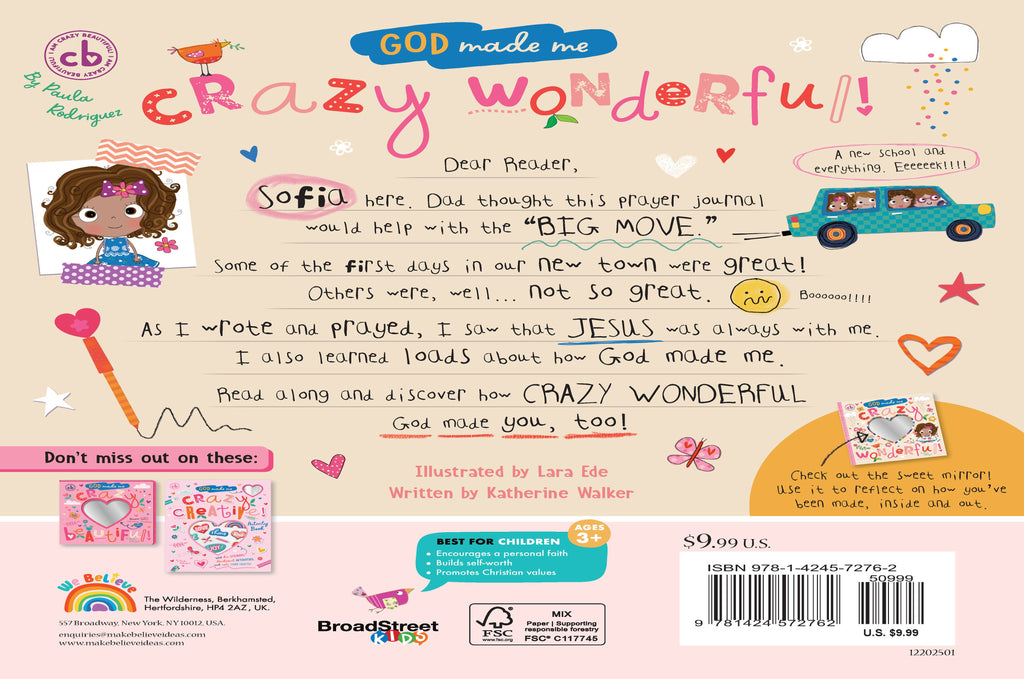 I AM CRAZY BEAUTIFUL! I AM CRAZY BEAUTIFUL!
cb
By Paula
Rodriguez
GOD made me
CRazy wonderful!
Dear Reader,
Sofia here. Dad thought this prayer journal
would help with the “BIG MOVE.”
A new school and
everything. Eeeeeek!!!!
Some of the first days in our new town were great!
Others were, well... not so great.
Boooooo!!!!
As I wrote and prayed, I saw that JESUS was always with me.
I also learned loads about how God made me.
Read along and discover how CRAZY WONDERFUL
God made you, too!
Illustrated by Lara Ede
Written by Katherine Walker
GOD made me
CRazy
wonderful!
Check out the sweet mirror!
Use it to reflect on how you've
been made, inside and out.
Don't miss out on these:
GOD made me
CRazy
beautiful!
GOD made me
CRazy
CReative!
Activity
Book
We Believe
The Wilderness, Berkhamsted,
Hertfordshire, HP4 2AZ, UK.
557 Broadway, New York, NY 10012, USA.
enquiries@makebelieveideas.com
www.makebelieveideas.com
BEST FOR CHILDREN
AGES
3+
• Encourages a personal faith
• Builds self-worth
• Promotes Christian values
BroadStreet
KIDS
FSC
www.fsc.org
MIX
Paper | Supporting
responsible forestry
FSC® C117745
$9.99 U.S.
ISBN 978-1-4245-7276-2
50999
9 781424 572762
U.S. $9.99
12202501